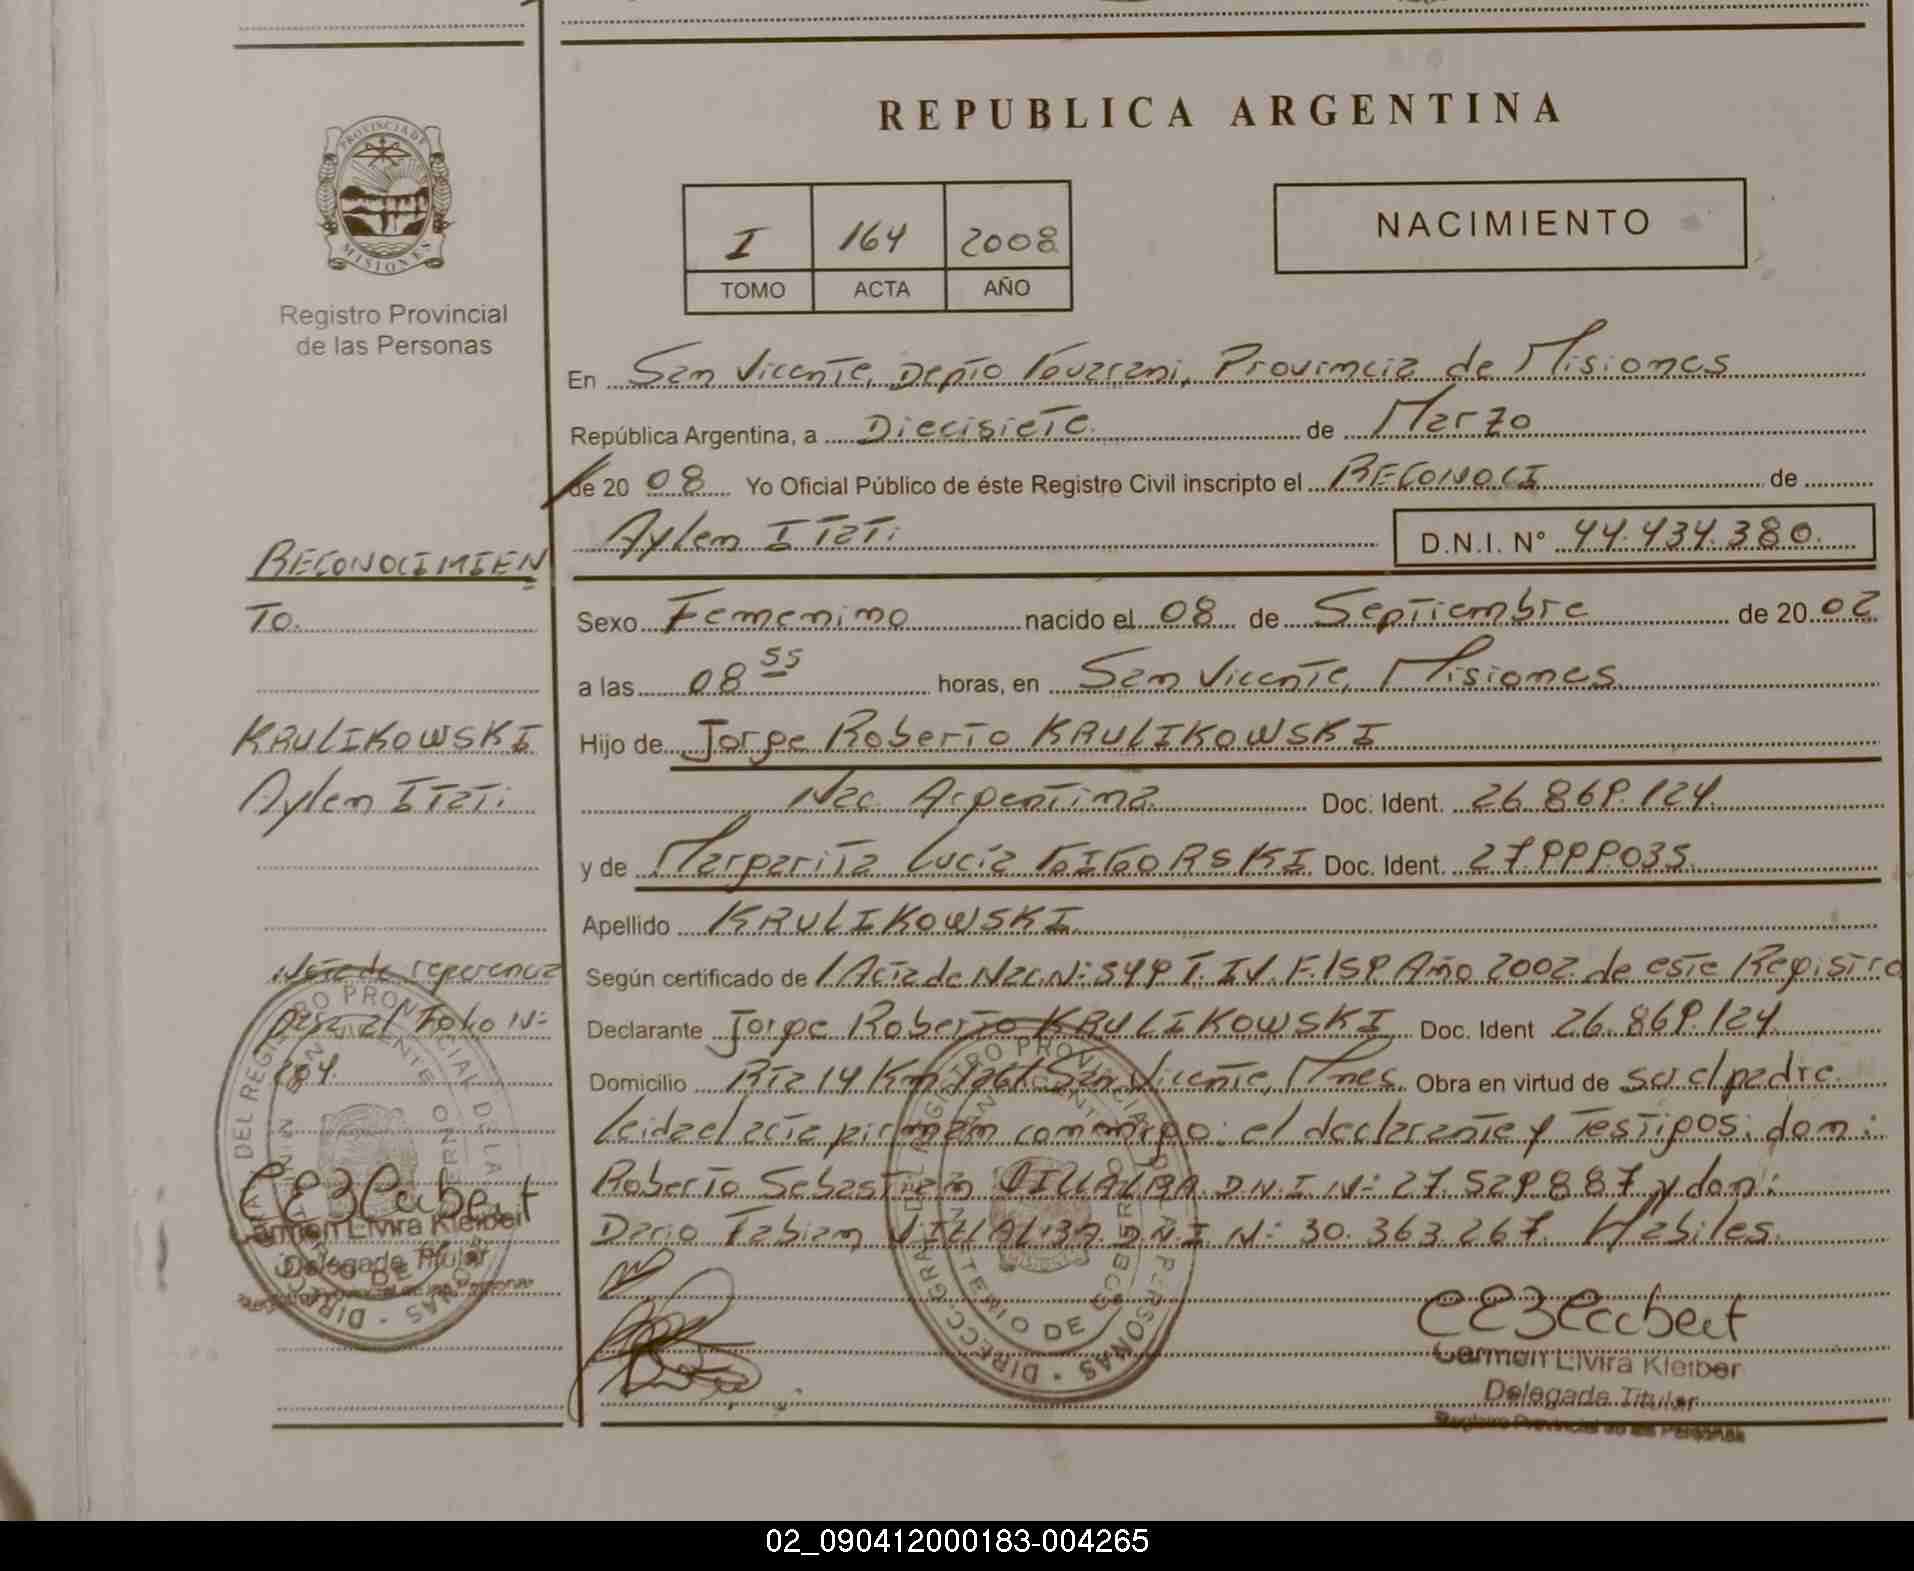 REPUBLICA ARGENTINA
PROVINCIA DE
MISIONES
Registro Provincial
de las Personas
I 164 2008
TOMO ACTA AÑO
NACIMIENTO
En San Vicente, Depto Guarani, Provincia de Misiones
República Argentina, a Diecisiete de Marzo
de 20 08 Yo Oficial Público de éste Registro Civil inscripto el RECONOCI de
Aylen Itati D.N.I. Nº 44.434.380.
RECONOCIMIEN
TO.
KRULIKOWSKI
Aylen Itati
Sexo Femenino nacido el 08 de Septiembre de 20 02
a las 08 55 horas, en San Vicente, Misiones
Hijo de Jorge Roberto KRULIKOWSKI
Nac. Argentina Doc. Ident. 26.869.124.
y de Margarita Lucía GIGORSKI Doc. Ident. 27.999.035.
Apellido KRULIKOWSKI
Según certificado de 1 Acta de Nac. Nº 549 T. IV. F. 159. Año 2002 de este Registro
Declarante Jorge Roberto KRULIKOWSKI Doc. Ident 26.869.124
Domicilio Rta 14 Km San Vicente, Mnes. Obra en virtud de ser el padre.
Leida el acta firman conmigo: el declarante y Testigos: don:
Roberto Sebastian VILLALBA D.N.I. Nº 27.529.887 y don:
Dario Fabian VILLALBA D.N.I. Nº 30.363.267. Habiles.
Nota de referencia
pasa al Folio Nº
Carmen Elvira Kleiber
Delegada Titular
Registro Provincial de las Personas
Carmen Elvira Kleiber
Delegada Titular
Registro Provincial de las Personas
02_090412000183-004265